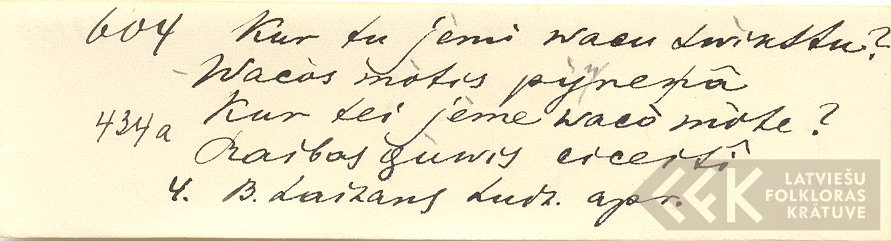 604 Kur tu jèmi wacu swikstu?
Wacòs mòtis pyrenâ
434a Kur tei jème wacò mòte?
Raibas gùwis ciceitî
4. B. Laizans Ludz. apr.
LATVIEŠU
FOLKLORAS
KRĀTUVE